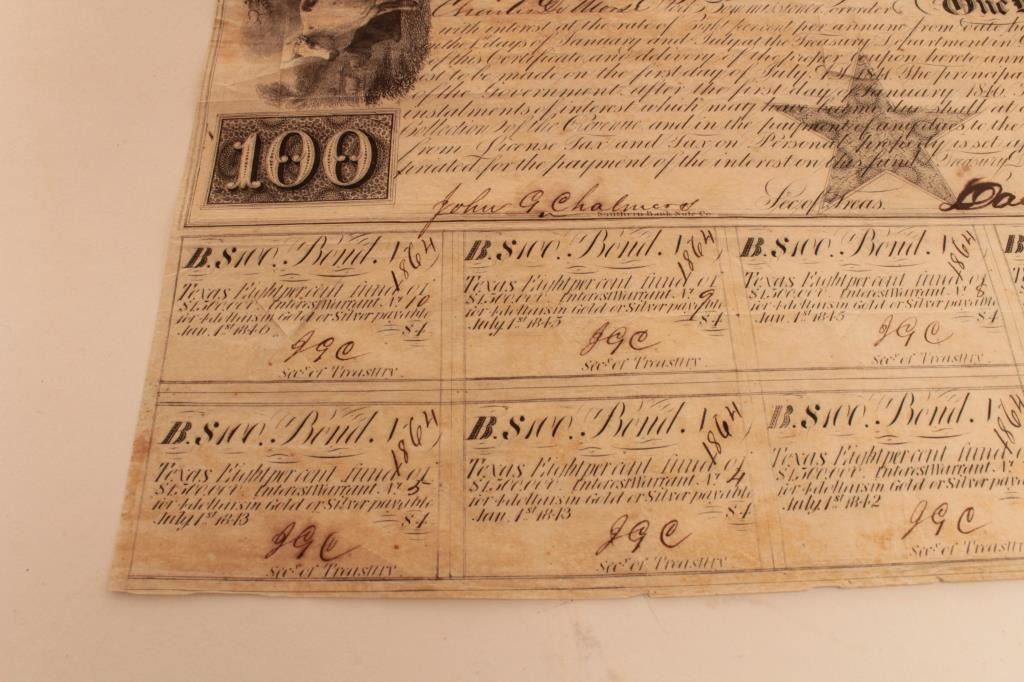 Stock Commissioner, or order One
with interest at the rate of eight per cent per annum from date
on the first days of January and July at the Treasury Department in
of this Certificate and delivery of the proper
st to be made on the first day of July. The principa
of the Government after the first day of January 1846.
instalments of interest which may have become due shall at
Collection of the Revenue and in the payment of any dues to the
from License Tax and Tax on Personal property is set
preciated for the payment of the interest on this fund Treasury
100
John G. Chalmers Sec. of Treas. Da
Southern Bank Note Co.
B. $100. Bond. No. 1864
Texas Eight per cent fund of
$1,500,000. Interest Warrant No. 10
for 4 dollars in Gold or Silver payable
Jan. 1st 1846 $4
JGC
Secy. of Treasury.
B. $100. Bond. No. 1864
Texas Eight per cent fund of
$1,500,000. Interest Warrant No. 9
for 4 dollars in Gold or Silver payable
July 1st 1845 $4
JGC
Secy. of Treasury.
B. $100. Bond. No. 1864
Texas Eight per cent fund of
$1,500,000. Interest Warrant No. 8
for 4 dollars in Gold or Silver payable
Jan. 1st 1845 $4
JGC
Secy. of Treasury.
B. $100. Bond. No. 1864
Texas Eight per cent fund of
$1,500,000. Interest Warrant No. 5
for 4 dollars in Gold or Silver payable
July 1st 1843 $4
JGC
Secy. of Treasury.
B. $100. Bond. No. 1864
Texas Eight per cent fund of
$1,500,000. Interest Warrant No. 4
for 4 dollars in Gold or Silver payable
Jan. 1st 1843 $4
JGC
Secy. of Treasury.
B. $100. Bond. No. 1864
Texas Eight per cent fund o
$1,500,000. Interest Warrant No.
for 4 dollars in Gold or Silver payabl
July 1st 1842
JGC
Secy. of Treasury